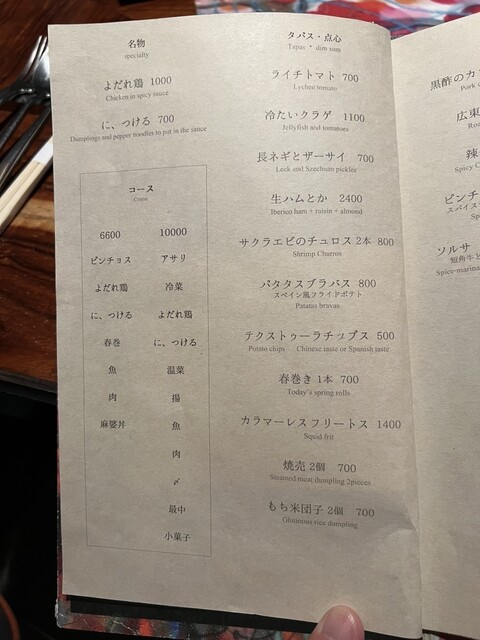 名物
specialty
よだれ鶏 1000
Chicken in spicy sauce
に、つける 700
Dumplings and pepper noodles to put in the sauce
コース
6600 10000
ピンチョス アサリ
よだれ鶏 冷菜
に、つける よだれ鶏
春巻 に、つける
魚 温菜
肉 揚
麻婆丼 魚
肉
〆
最中
小菓子
タパス・点心
Tapas・dim sum
ライチトマト 700
Lychee tomato
冷たいクラゲ 1100
Jellyfish and tomatoes
長ネギとザーサイ 700
Leek and Szechuan pickles
生ハムとか 2400
Iberico ham + raisin + almond
サクラエビのチュロス 2本 800
Shrimp Churros
パタタスブラバス 800
スペイン風フライドポテト
Patatas bravas
テクストゥーラチップス 500
Potato chips Chinese taste or Spanish taste
春巻き 1本 700
Today's spring rolls
カラマーレスフリートス 1400
Squid frit
焼売 2個 700
Steamed meat dumpling 2pieces
もち米団子 2個 700
Glutinous rice dumpling
黒酢のカ
Pork
広東
辣
Spicy C
ピンチ
スパイス
ソルサ
短角牛と
Spice-marina